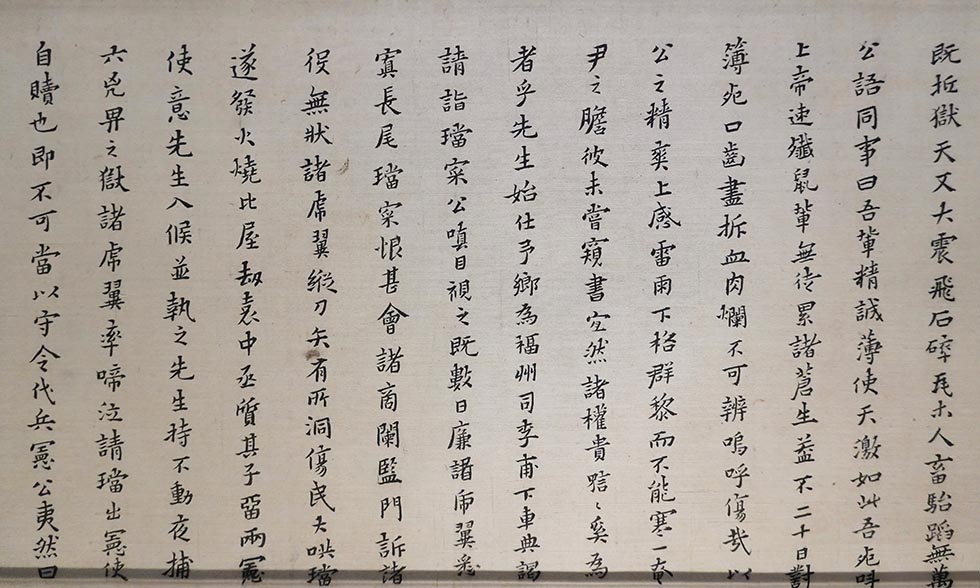 既抵獄天又大震飛石碎瓦木人畜駘蹈無萬
公語同事曰吾輩精誠薄使天激如此吾死
上帝速殲鼠輩無徒累諸蒼生益不二十日對
簿死口齒盡拆血肉爛不可辨嗚呼傷哉以
公之精爽上感雷雨下格群黎而不能寒一奄
尹之膽彼未嘗窺書空然諸權貴嘻〻奚為
者乎先生始仕予鄉為福州司李甫下車典謁
請詣璫寀公嗔目視之既數日廉諸席翼悉
寘長尾璫寀恨甚會諸商闌監門訴諸
役無狀諸席翼縱刀矢有所洞傷民大哄璫
遂發火燒比屋劫袁中丞質其子臿兩憲
使意先生入候並執之先生持不動夜捕
六兇畀之獄諸席翼率啼泣請璫出憲使
自贖也即不可當以守令代兵憲公夷然曰